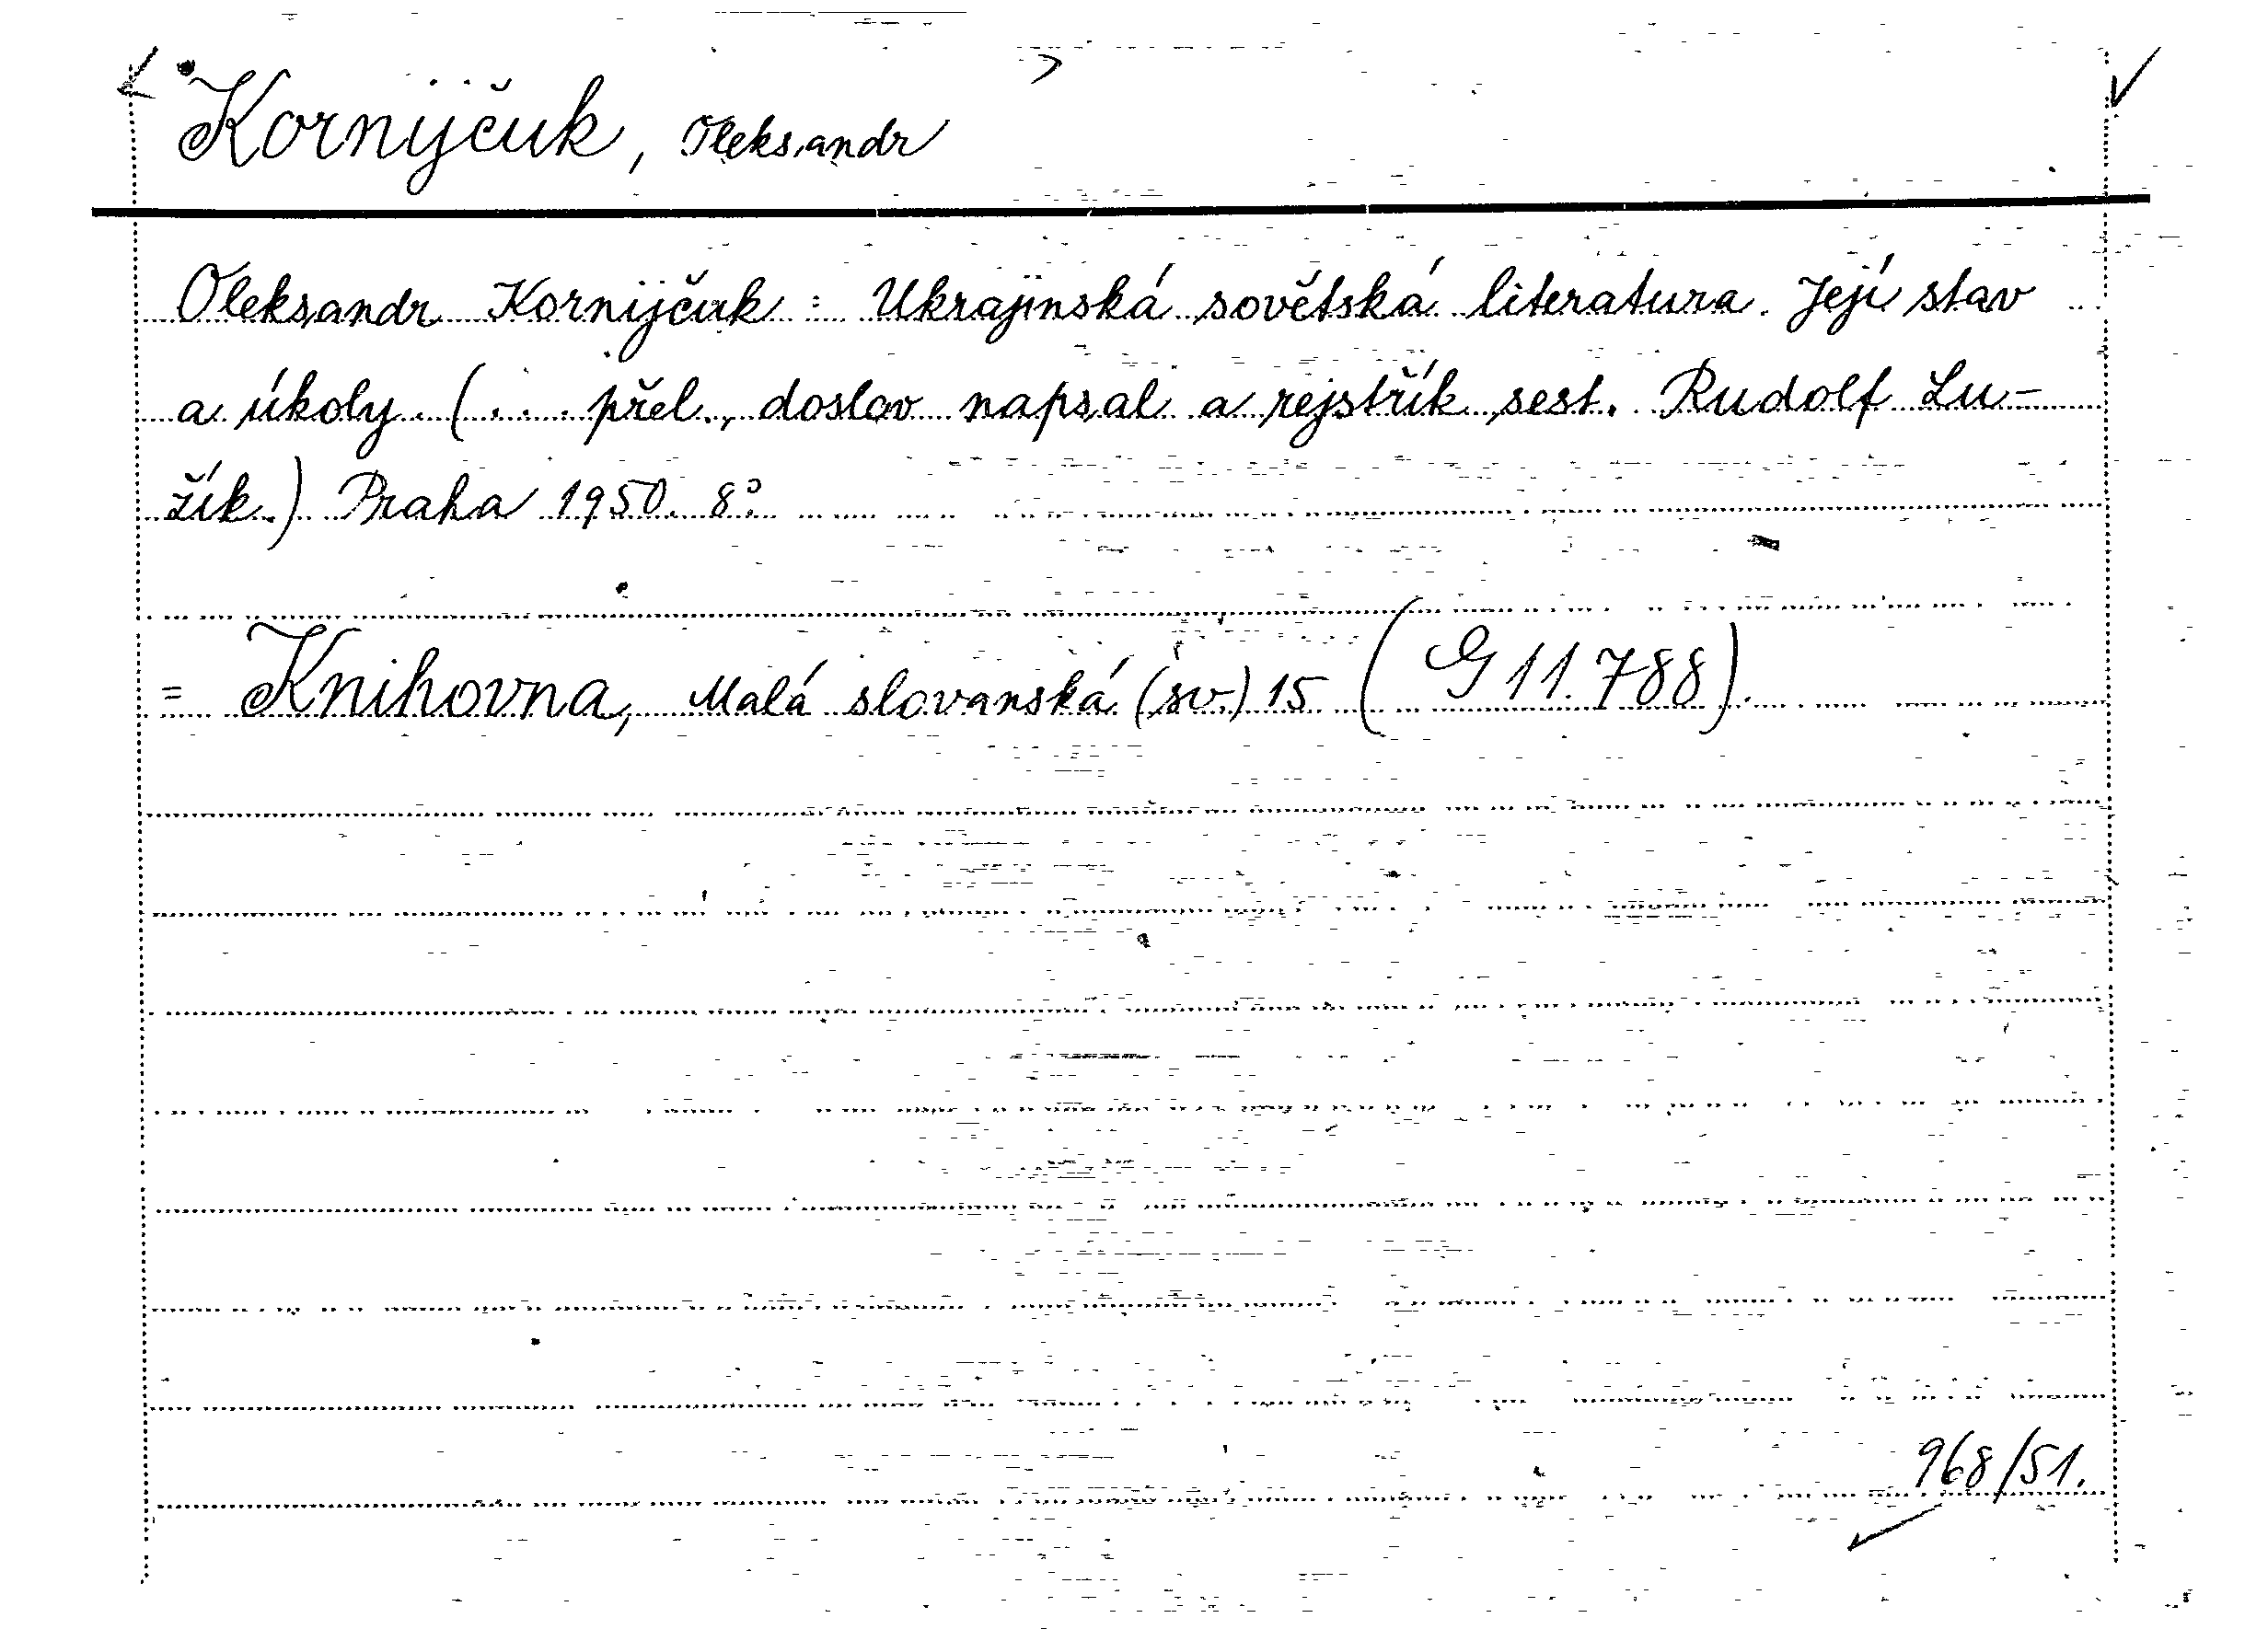 Kornijčuk, Oleksandr
Oleksandr Kornijčuk : Ukrajinská sovětská literatura. Její stav
a úkoly. (... přel., doslov napsal a rejstřík sest. Rudolf Lu-
žík.) Praha 1950. 8°.
= Knihovna, Malá slovanská (sv.) 15 (G 11.788).
968/51.